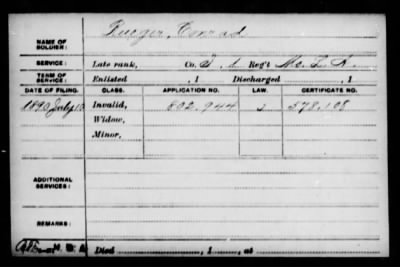 NAME OF SOLDIER: Rueger, Conrad
SERVICE: Late rank, Co. I, 1 Reg't Mo. L. A.
TERM OF SERVICE: Enlisted , 1 Discharged , 1
DATE OF FILING. CLASS. APPLICATION NO. LAW. CERTIFICATE NO.
1890 July 10 Invalid, 802.944 578.108
Widow,
Minor,
ADDITIONAL SERVICES:
REMARKS:
Died , 1 , at